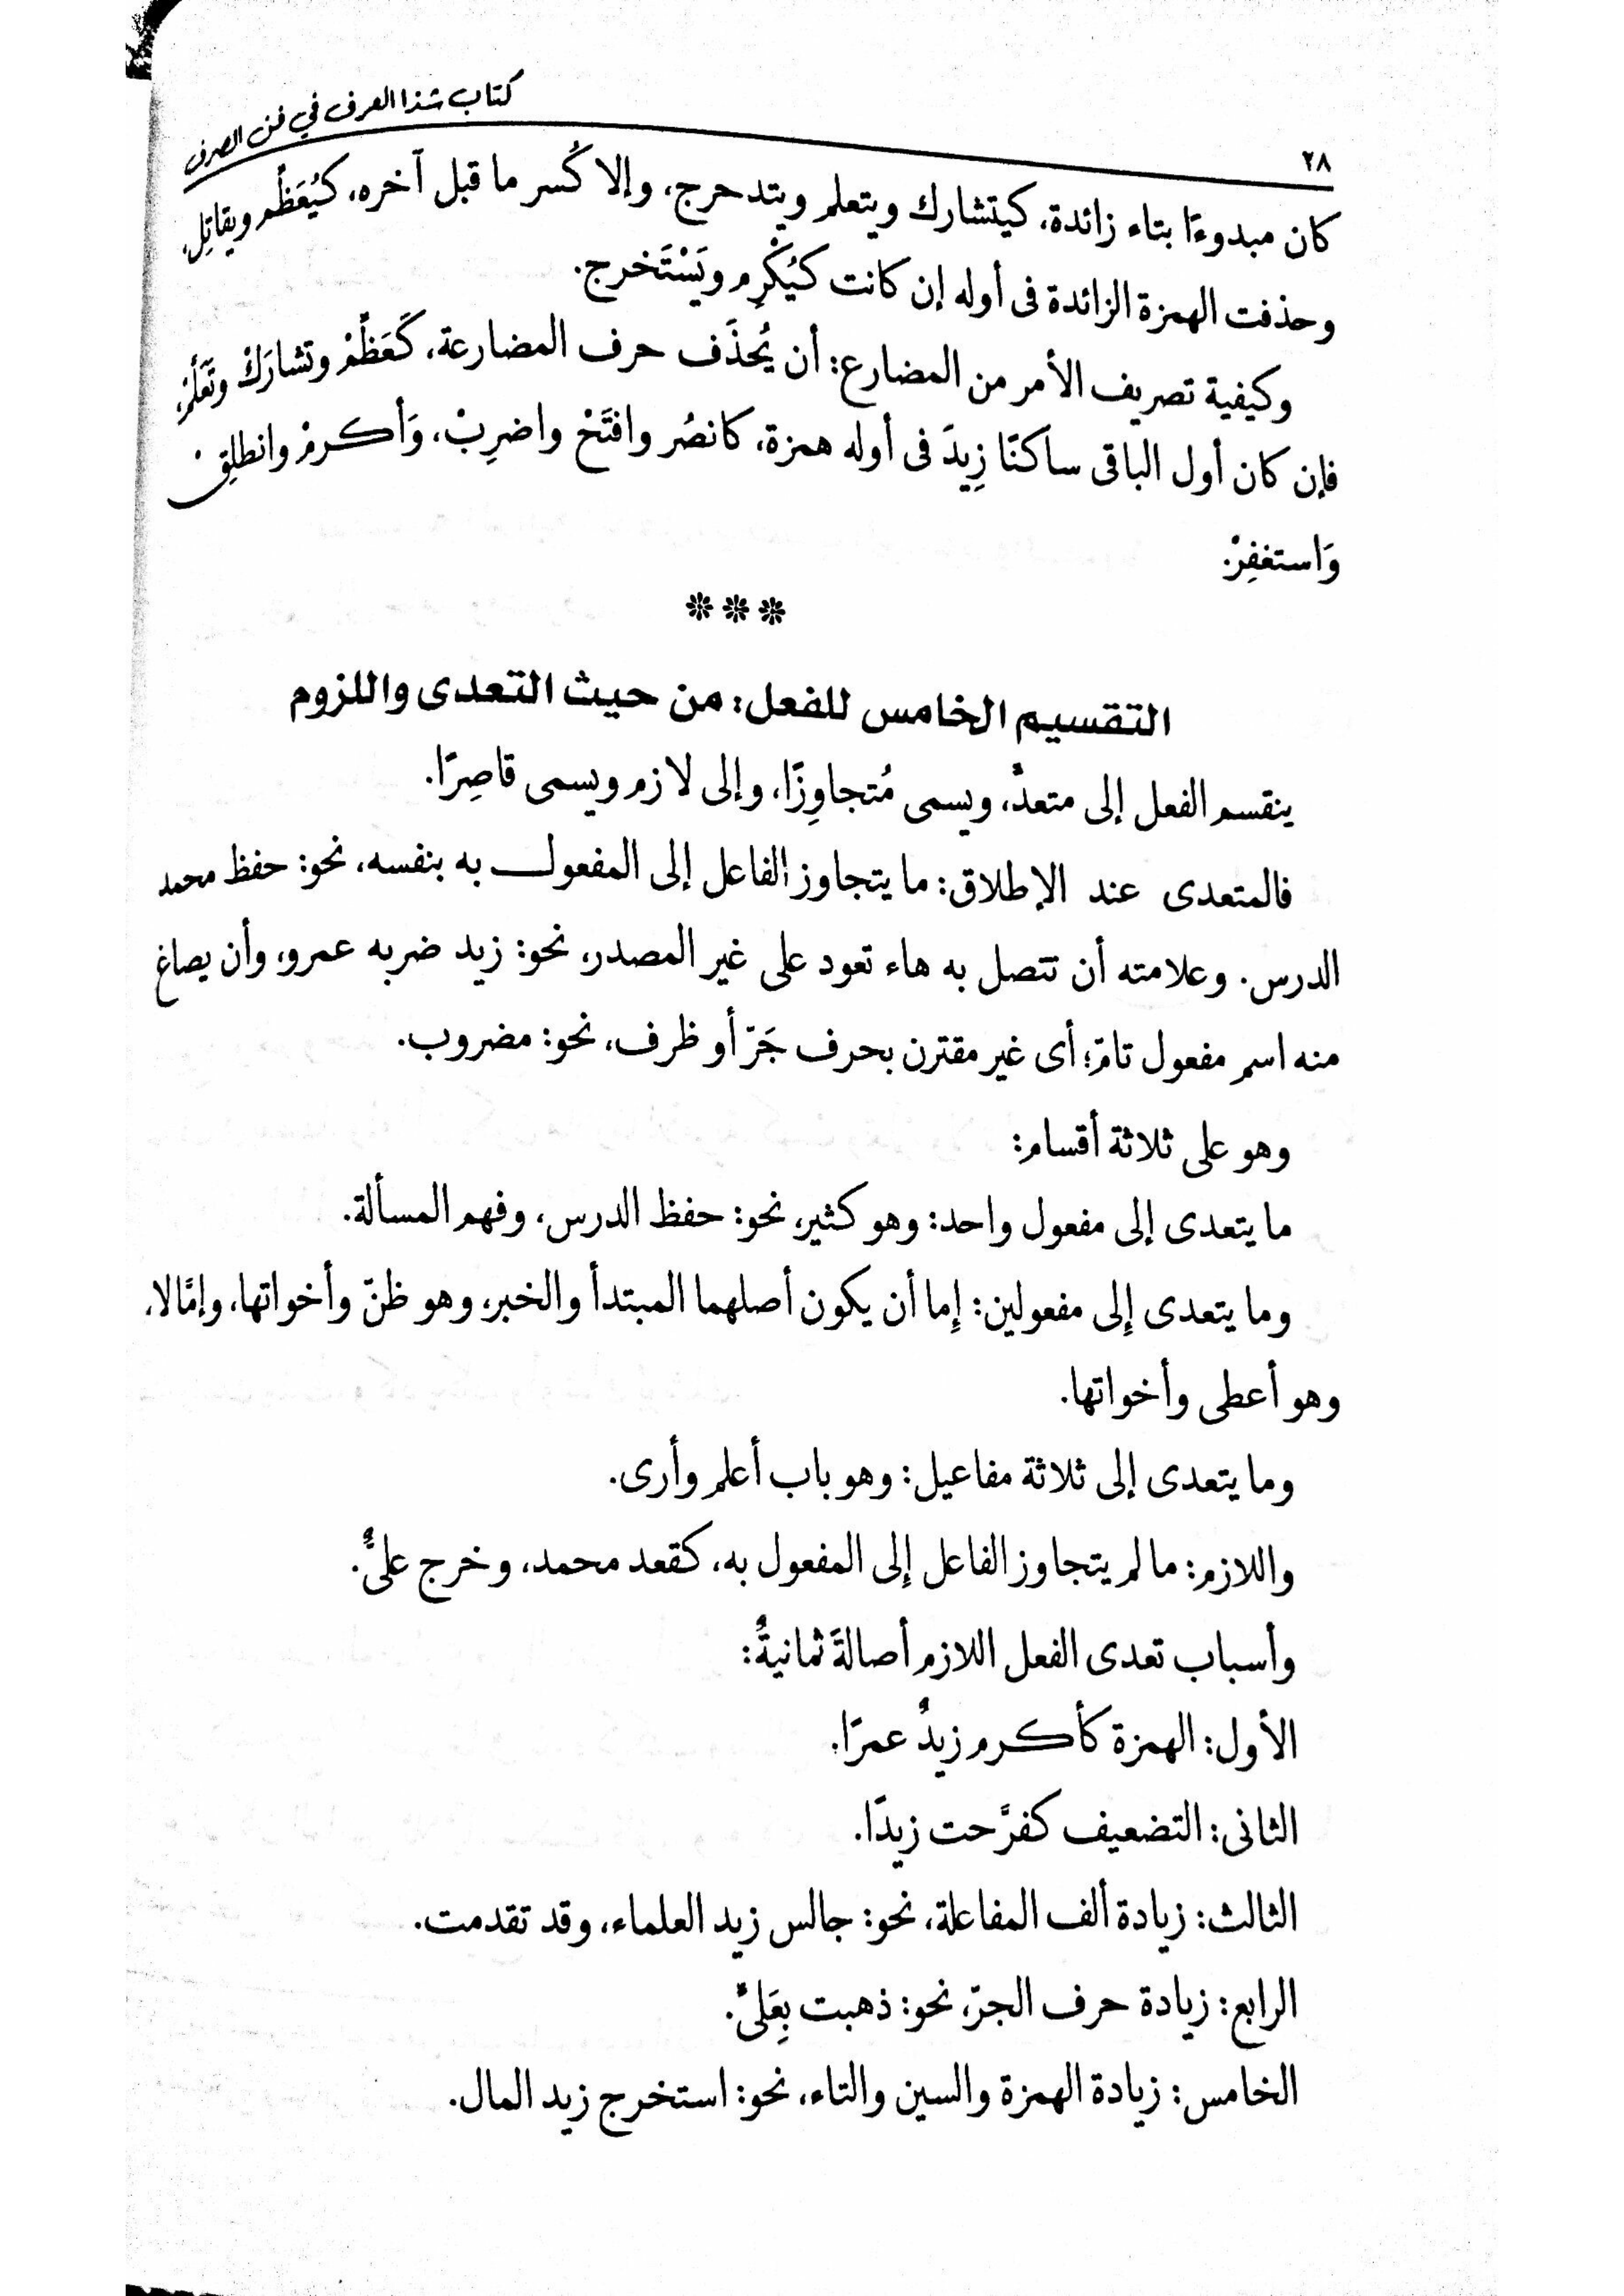 كتاب شذا العرف في فن الصرف
٢٨
كان مبدوءًا بتاء زائدة، كيتشارك ويتعلم ويتدحرج، وإلا كُسر ما قبل آخره، كيُعَظِّم ويقاتِل،
وحذفت الهمزة الزائدة فى أوله إن كانت كيُكْرِم ويَسْتَخرج.
وكيفية تصريف الأمر من المضارع: أن يُحذَف حرف المضارعة، كَعَظِّمْ وتشارَكْ وتَعَلَّمْ،
فإن كان أول الباقى ساكنًا زِيدَ فى أوله همزة، كانصُر وافتَحْ واضرِبْ، وَأكرمْ وانطلِقْ
وَاستغفِرْ.
***
التقسيم الخامس للفعل: من حيث التعدى واللزوم
ينقسم الفعل إلى متعدٍّ، ويسمى مُتجاوِزًا، وإلى لازم ويسمى قاصِرًا.
فالمتعدى عند الإطلاق: ما يتجاوز الفاعل إلى المفعول به بنفسه، نحو: حفظ محمد
الدرس. وعلامته أن تتصل به هاء تعود على غير المصدر، نحو: زيد ضربه عمرو، وأن يصاغ
منه اسم مفعول تامّ؛ أى غير مقترن بحرف جَرّ أو ظرف، نحو: مضروب.
وهو على ثلاثة أقسام:
ما يتعدى إلى مفعول واحد: وهو كثير، نحو: حفظ الدرس، وفهم المسألة.
وما يتعدى إلى مفعولين: إما أن يكون أصلهما المبتدأ والخبر، وهو ظنّ وأخواتها، وإمَّا لا،
وهو أعطى وأخواتها.
وما يتعدى إلى ثلاثة مفاعيل: وهو باب أعلم وأرى.
واللازم: ما لم يتجاوز الفاعل إلى المفعول به، كقعد محمد، وخرج علىٌّ.
وأسباب تعدى الفعل اللازم أصالةً ثمانيةٌ:
الأول: الهمزة كأكرم زيدٌ عمرًا.
الثانى: التضعيف كفرَّحت زيدًا.
الثالث: زيادة ألف المفاعلة، نحو: جالس زيد العلماء، وقد تقدمت.
الرابع: زيادة حرف الجرّ، نحو: ذهبت بِعَلىٍّ.
الخامس: زيادة الهمزة والسين والتاء، نحو: استخرج زيد المال.